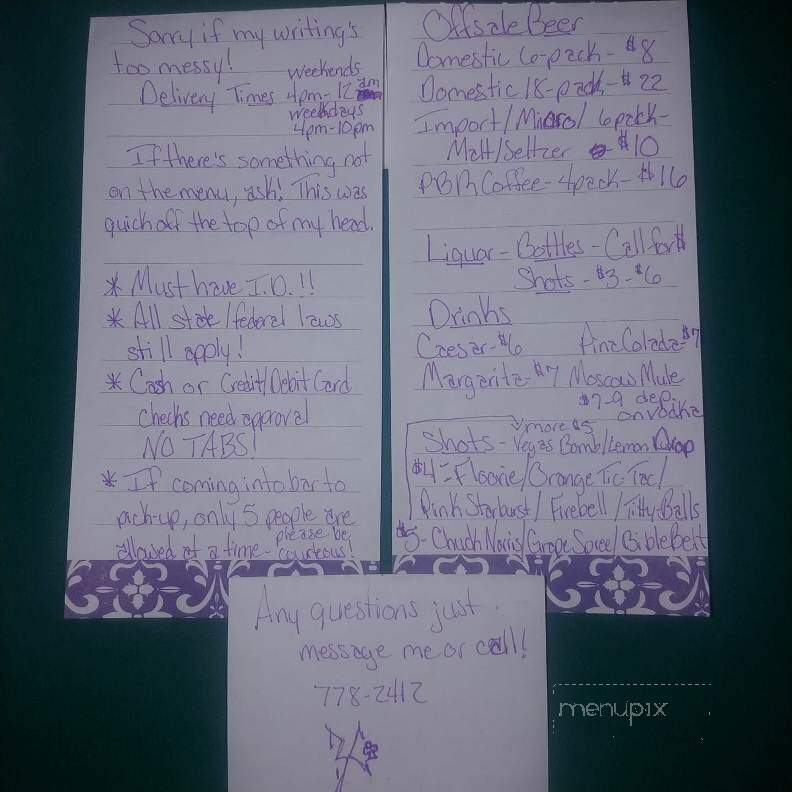 Sorry if my writing's
too messy!
Weekends
Delivery Times 4pm-12am
Weekdays
4pm-10pm
If there's something not
on the menu, ask! This was
quick off the top of my head.
* Must have I.D.!!
* All state/federal laws
still apply!
* Cash or Credit/Debit Card
checks need approval
NO TABS!
* If coming into bar to
pick-up, only 5 people are
allowed at a time - please be
courteous!
Offsale Beer
Domestic 6-pack - $8
Domestic 18-pack - $22
Import/Micro/ 6pack-
Malt/Seltzer - $10
PBR Coffee - 4pack - $16
Liquor - Bottles - Call for $
Shots - $3 - $6
Drinks
Caesar - $6 Pina Colada - $7
Margarita - $7 Moscow Mule
$7-9 dep.
on vodka
more $5
Shots - Vegas Bomb/Lemon Drop
$4 - Floorie/Orange Tic-Tac/
Pink Starburst/Fireball/Titty-Balls
$5 - Chuck Norris/Grape Spree/Bible Belt
Any questions just
message me or call!
778-2412
menupix